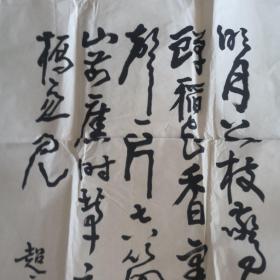 明月别枝驚
蟬稻花香里
聲一片七八箇
山前舊時茅
橋忽見
超